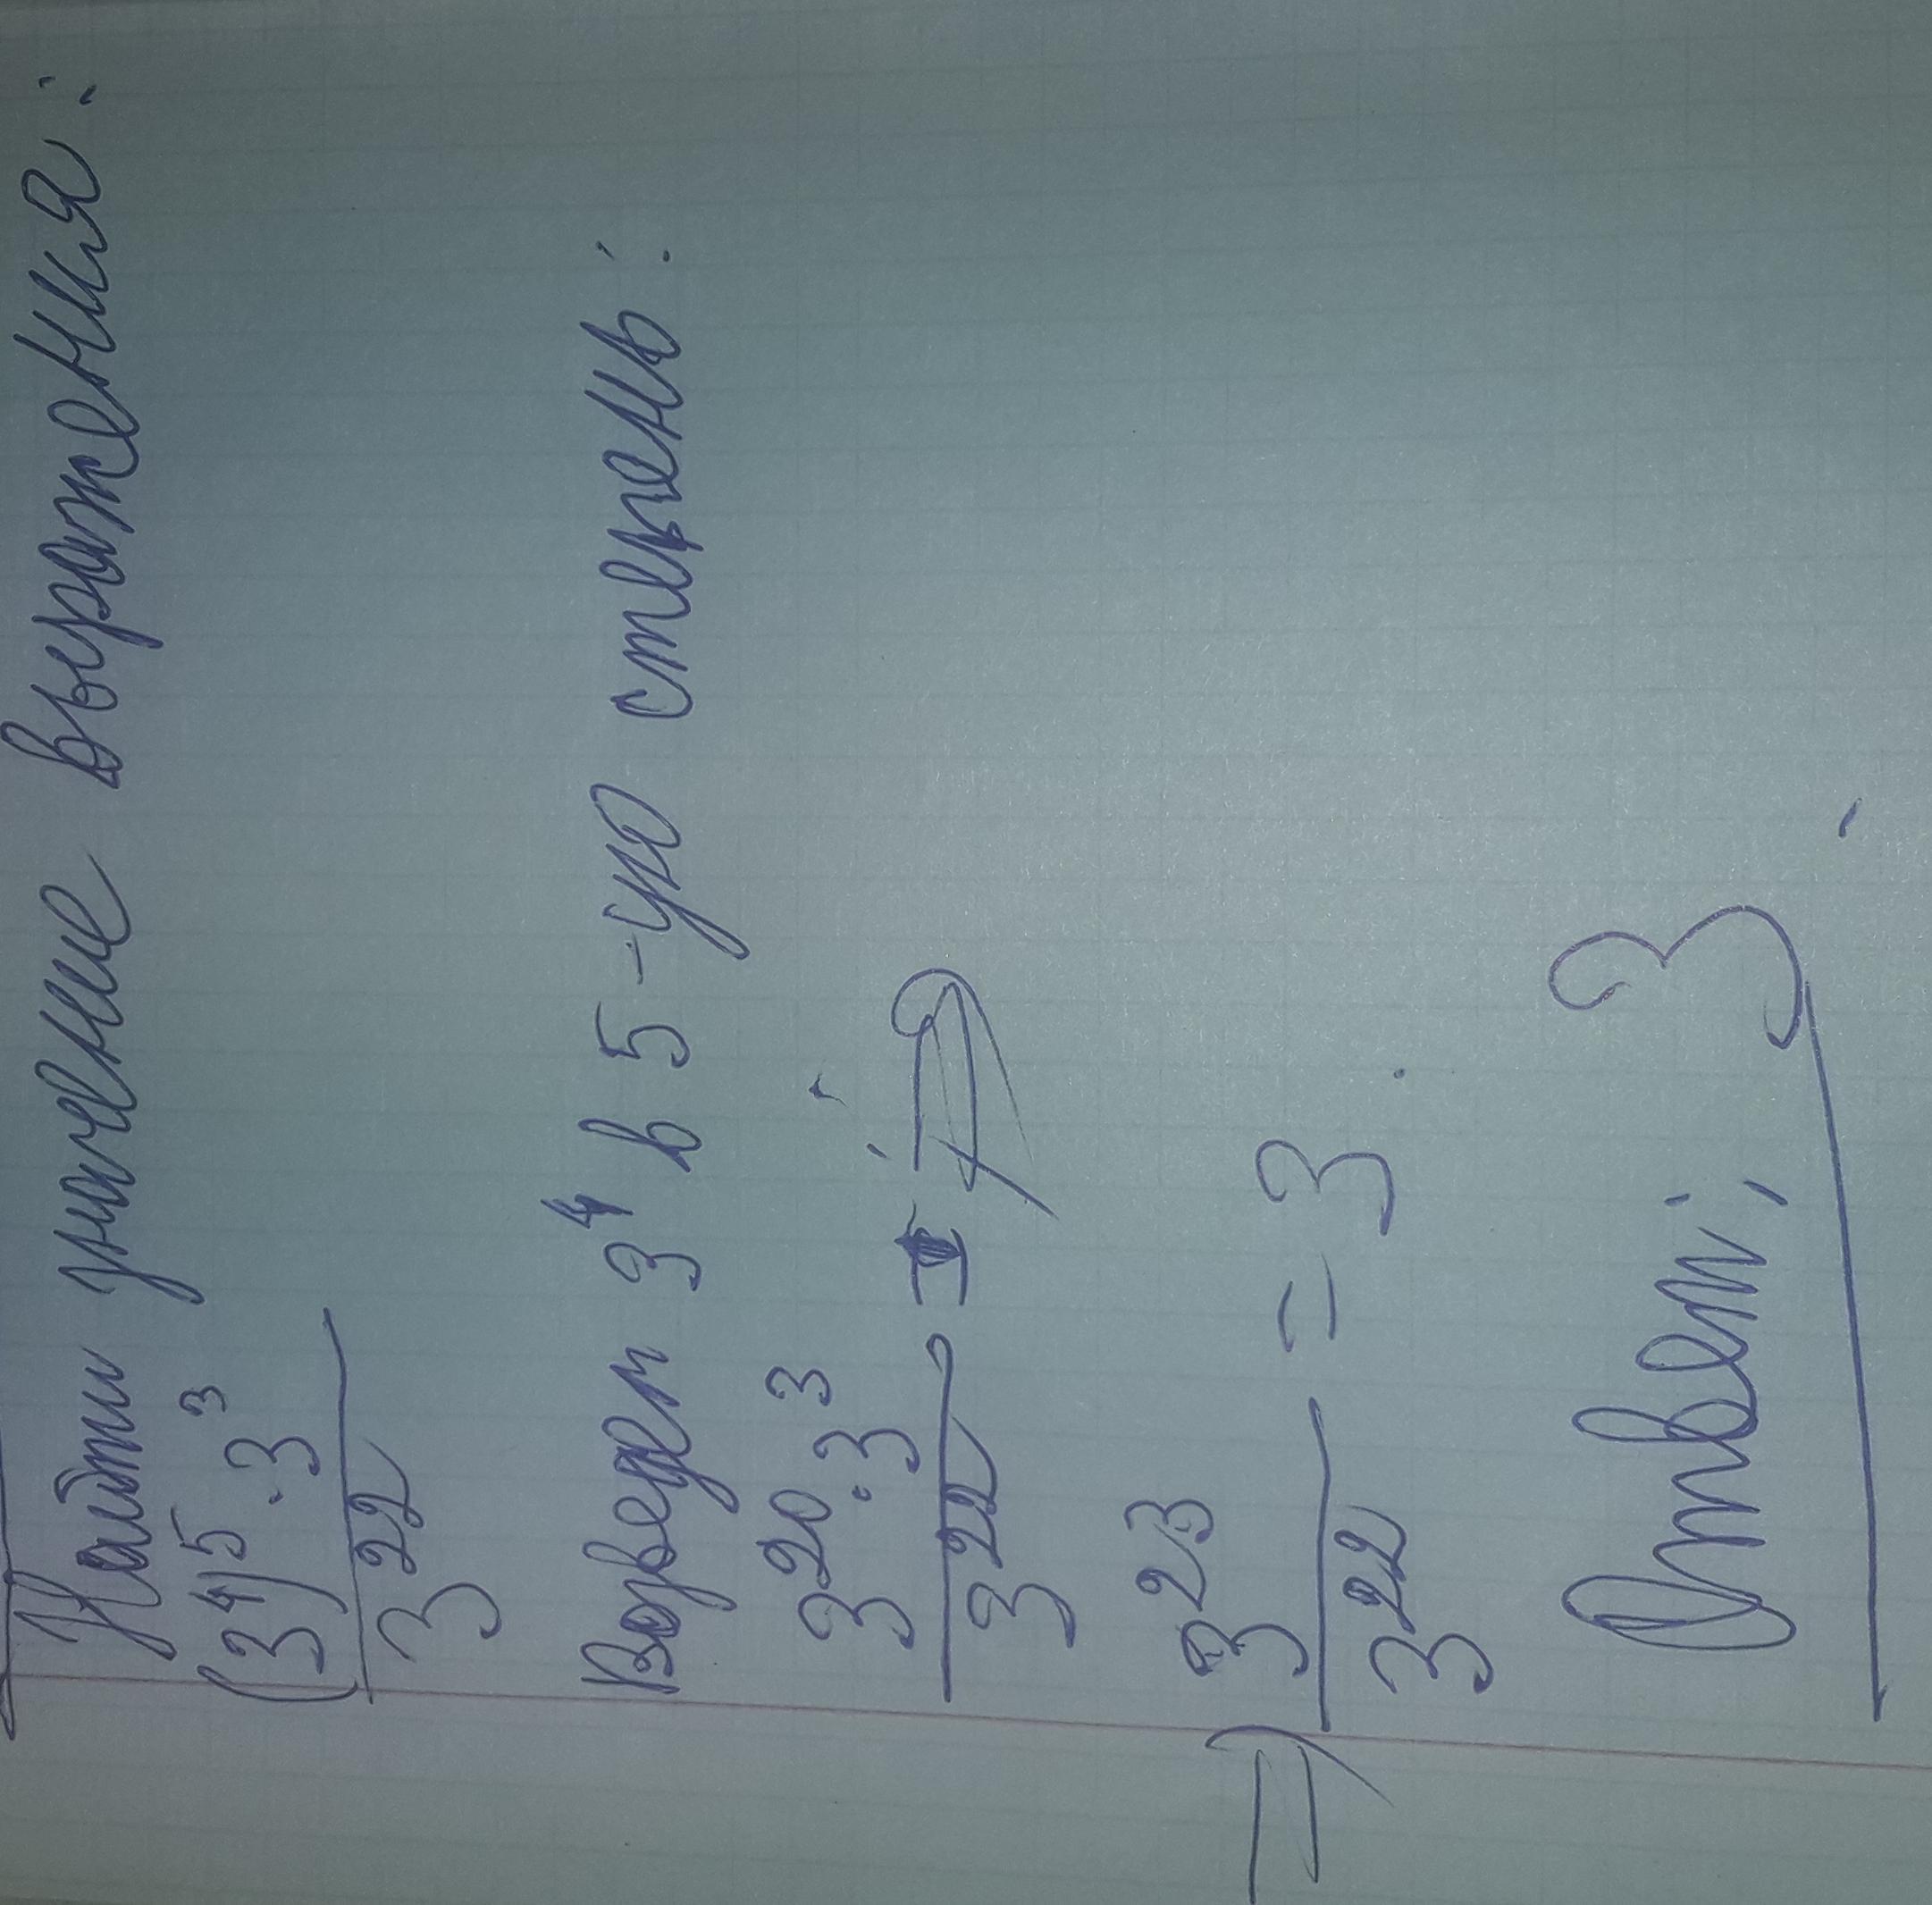 Найти значение выражения:
(3⁴)⁵ · 3³
3²²
Возведём 3⁴ в 5-ую степень:
3²⁰ · 3³
3²² ⇒
⇒ 3²³
3²² = 3.
Ответ: 3.